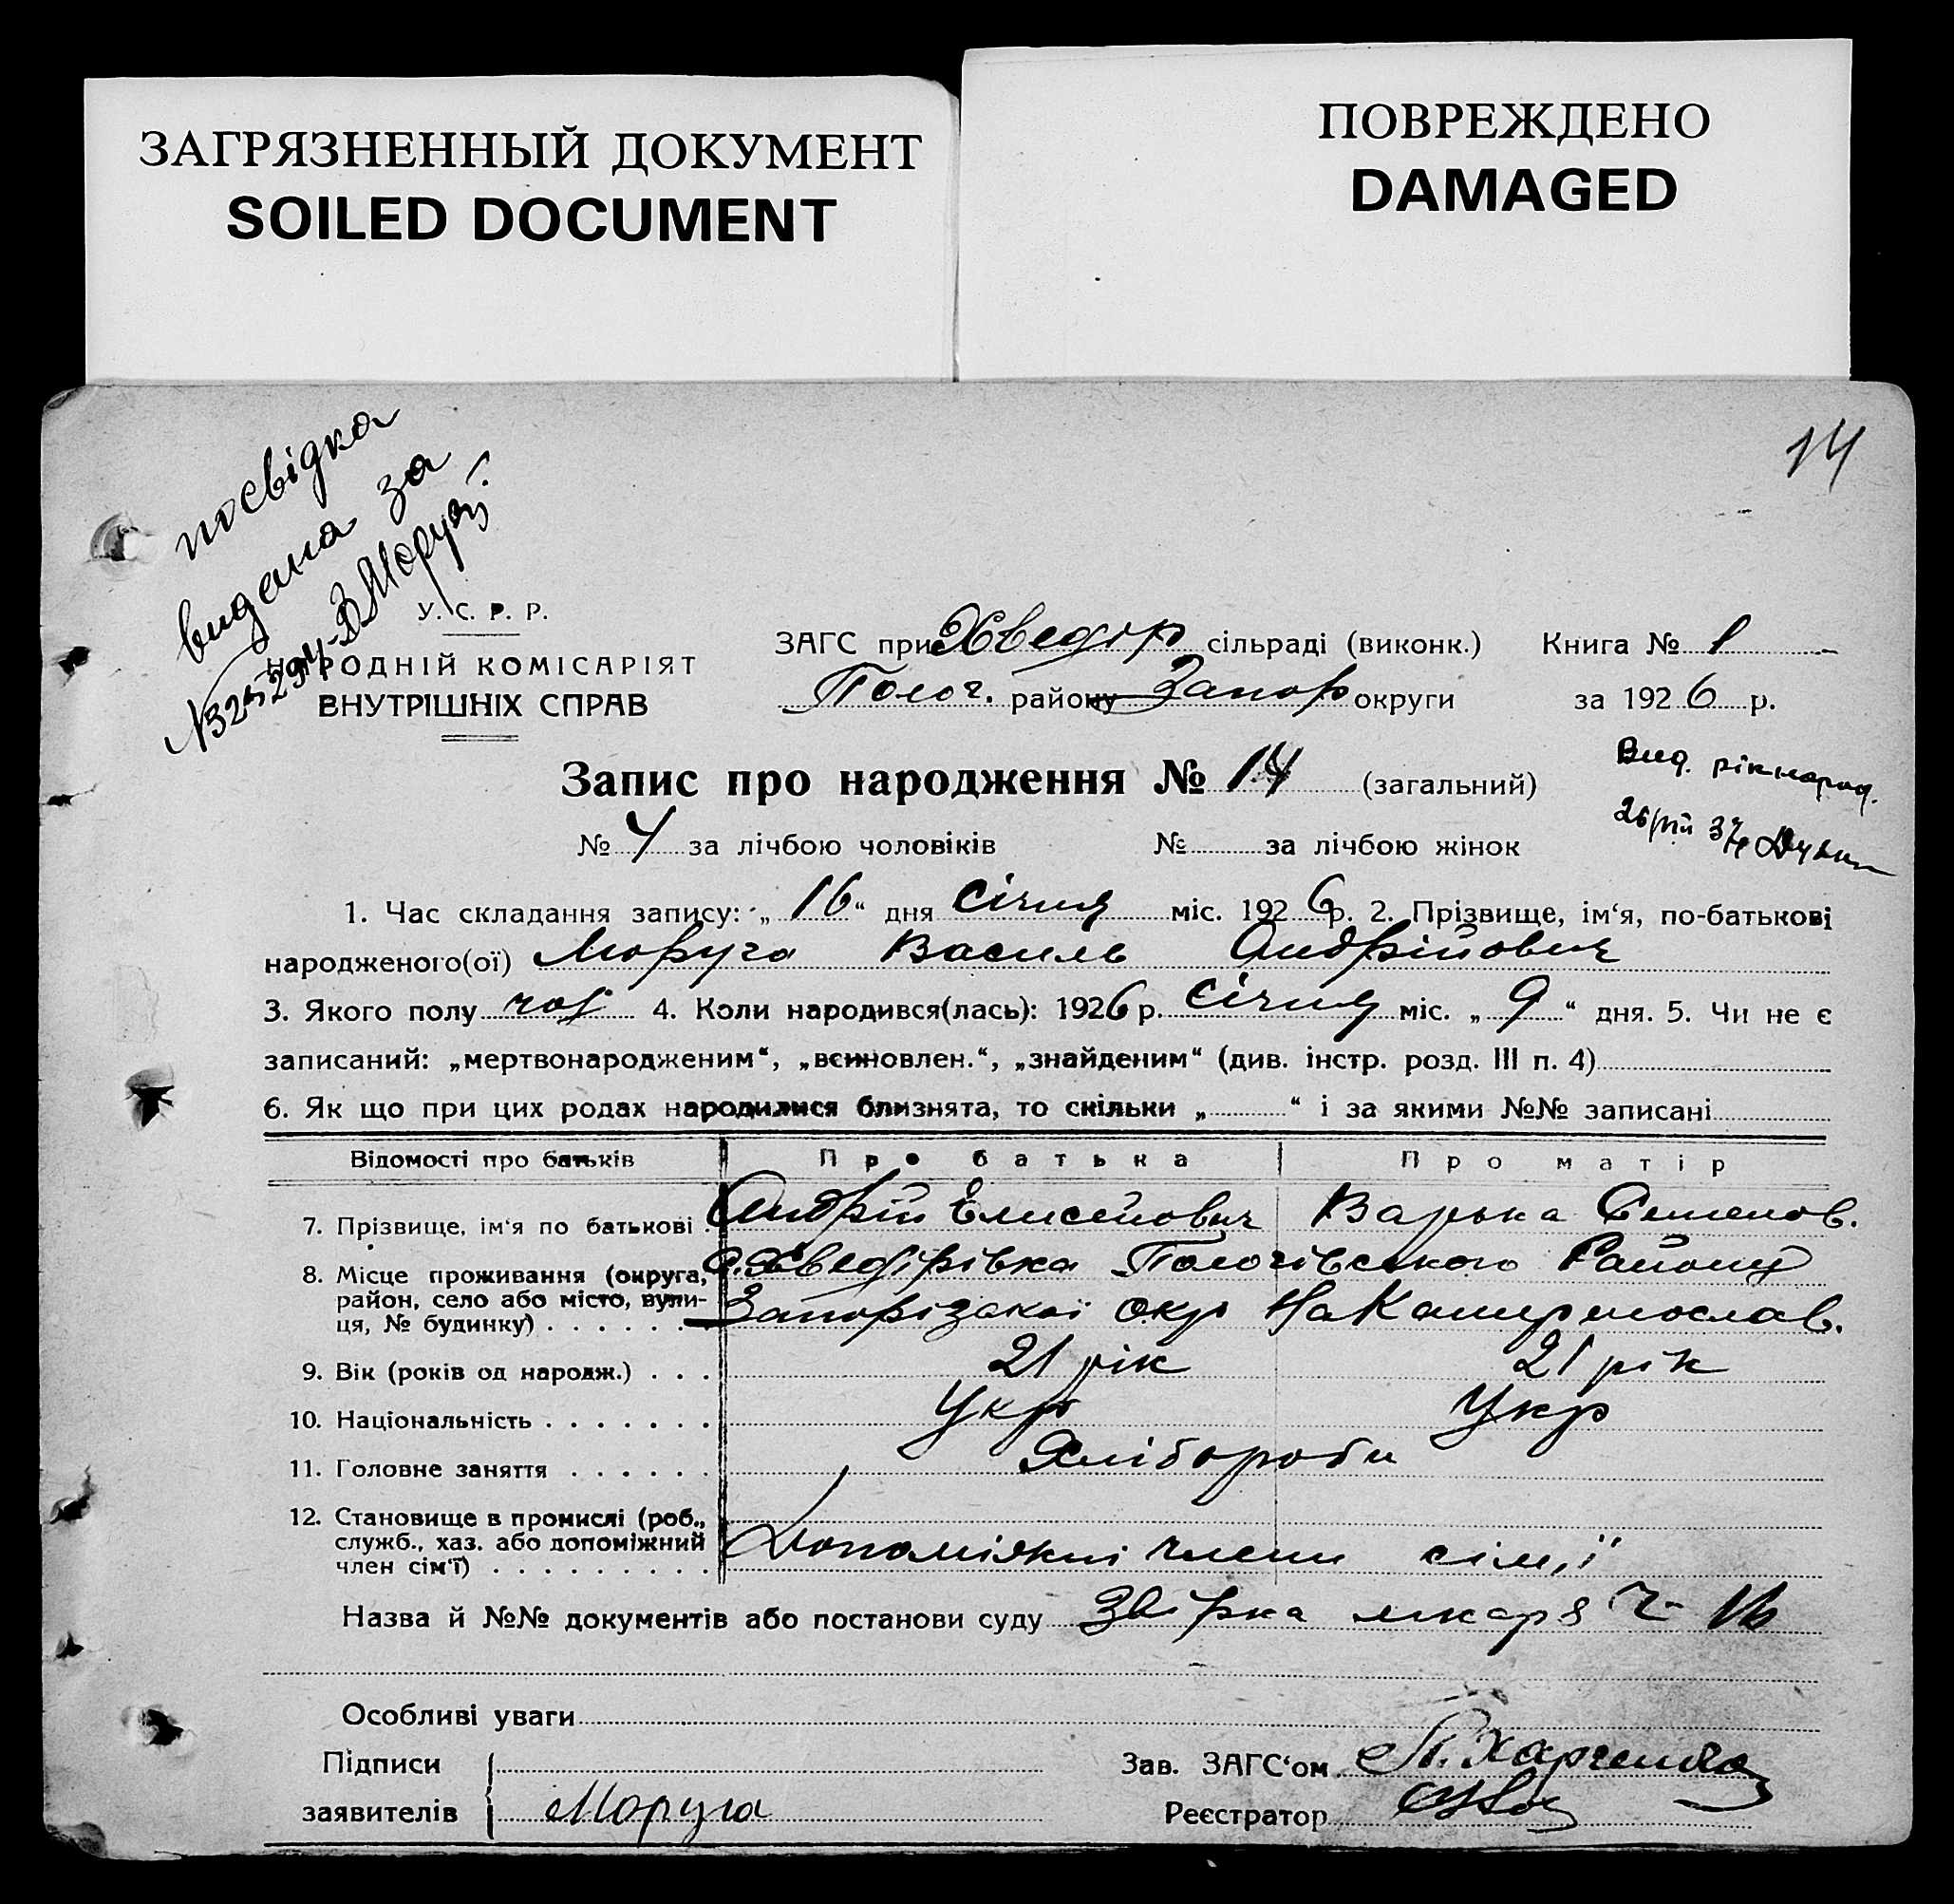 ЗАГРЯЗНЕННЫЙ ДОКУМЕНТ
SOILED DOCUMENT
ПОВРЕЖДЕНО
DAMAGED
14
посвідка
видана за
У. С. Р. Р.
НАРОДНІЙ КОМІСАРІЯТ
ВНУТРІШНІХ СПРАВ
ЗАГС при Хведір сільраді (виконк.) Книга № 1
Полог. району Запор округи за 1926 р.
Запис про народження № 14 (загальний)
Вид. рік народ.
№ 4 за лічбою чоловіків № за лічбою жінок
1. Час складання запису: „16“ дня Січня міс. 1926 р. 2. Прізвище, ім‘я, по-батькові
народженого(ої) Моруга Василь Андрійович
3. Якого полу чол 4. Коли народився(лась): 1926 р. Січня міс. „9“ дня. 5. Чи не є
записаний: „мертвонародженим“, „всиновлен.“, „знайденим“ (див. інстр. розд. III п. 4)
6. Як що при цих родах народилися близнята, то скільки „ “ і за якими №№ записані
Відомості про батьків Про батька Про матір
7. Прізвище, ім‘я по батькові Андрій Елисейович Варька Семенов.
8. Місце проживання (округа, район, село або місто, вулиця, № будинку) с. Хведірівка Пологівського Району
Запорізької Окр на Катеринослав.
9. Вік (років од народж.) 21 рік 21 рік
10. Національність Укр Укр
11. Головне заняття Хлібороби
12. Становище в промислі (роб., служб., хаз. або допоміжний член сім‘ї) Допоміжні члени сім,ї
Назва й №№ документів або постанови суду Звірка лікаря Ч- 16
Особливі уваги
Підписи заявителів Моруга
Зав. ЗАГС‘ом П. Харченко
Реєстратор